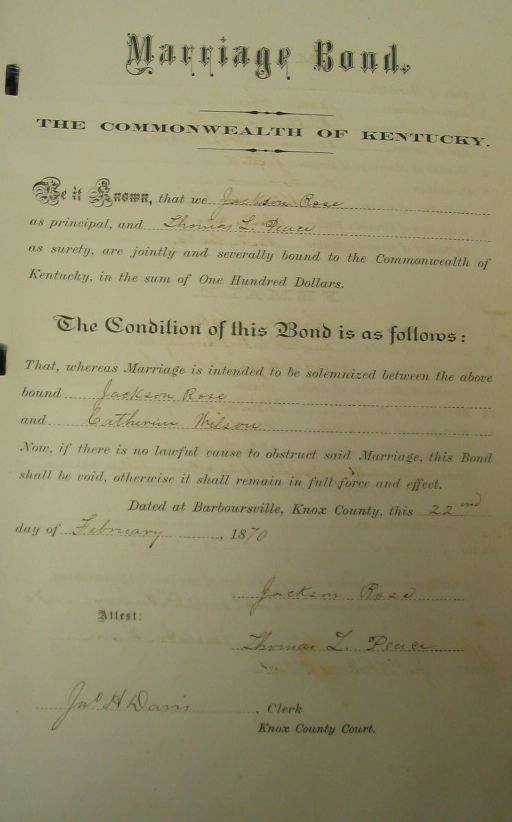 Marriage Bond.
THE COMMONWEALTH OF KENTUCKY.
Be it Known, that we Jackson Rose
as principal, and Thomas L. Peace
as surety, are jointly and severally bound to the Commonwealth of
Kentucky, in the sum of One Hundred Dollars.
The Condition of this Bond is as follows:
That, whereas Marriage is intended to be solemnized between the above
bound Jackson Rose
and Catherine Wilson
Now, if there is no lawful cause to obstruct said Marriage, this Bond
shall be void, otherwise it shall remain in full force and effect.
Dated at Barboursville, Knox County, this 22nd
day of February, 1870
Jackson Rose
Attest:
Thomas L. Peace
Jno H Davis, Clerk
Knox County Court.